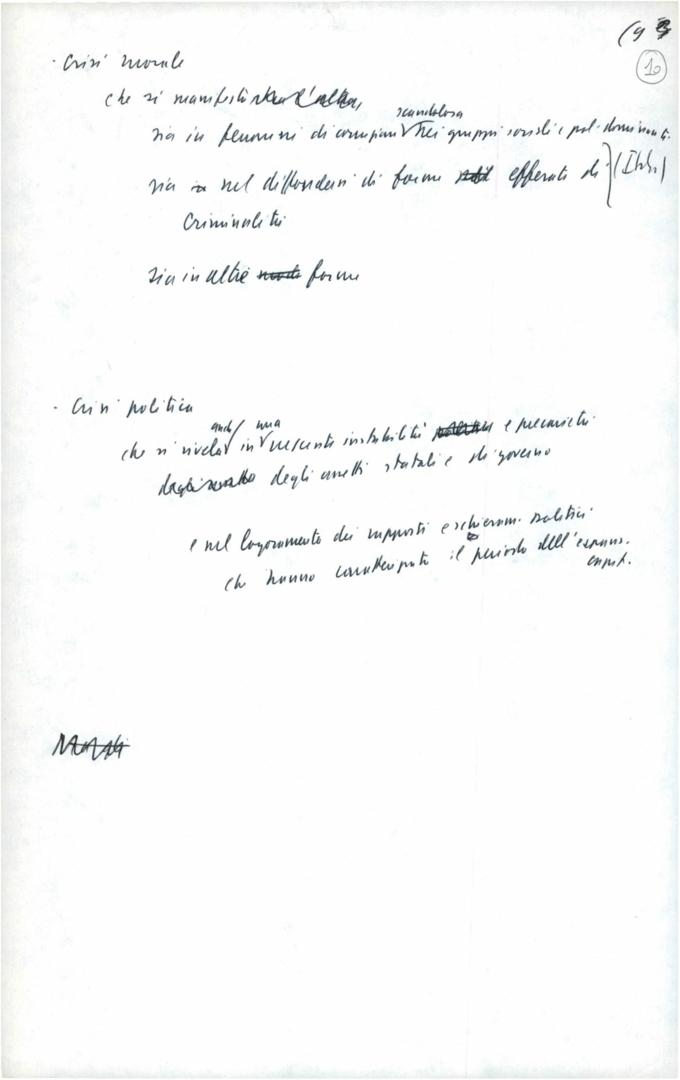 (9
10
· Crisi morale
che si manifesta
scandalosa
sia in fenomeni di corruzione nei gruppi sociali e pol. dominanti
sia in nel diffondersi di forme efferate di
criminalità
sia in altre forme
· Crisi politica
anche una
che si rivela in crescente instabilità e precarietà
degli assetti statali e di governo
e nel logoramento dei rapporti e schieram. politici
che hanno caratterizzato il periodo dell'espans.
capit.